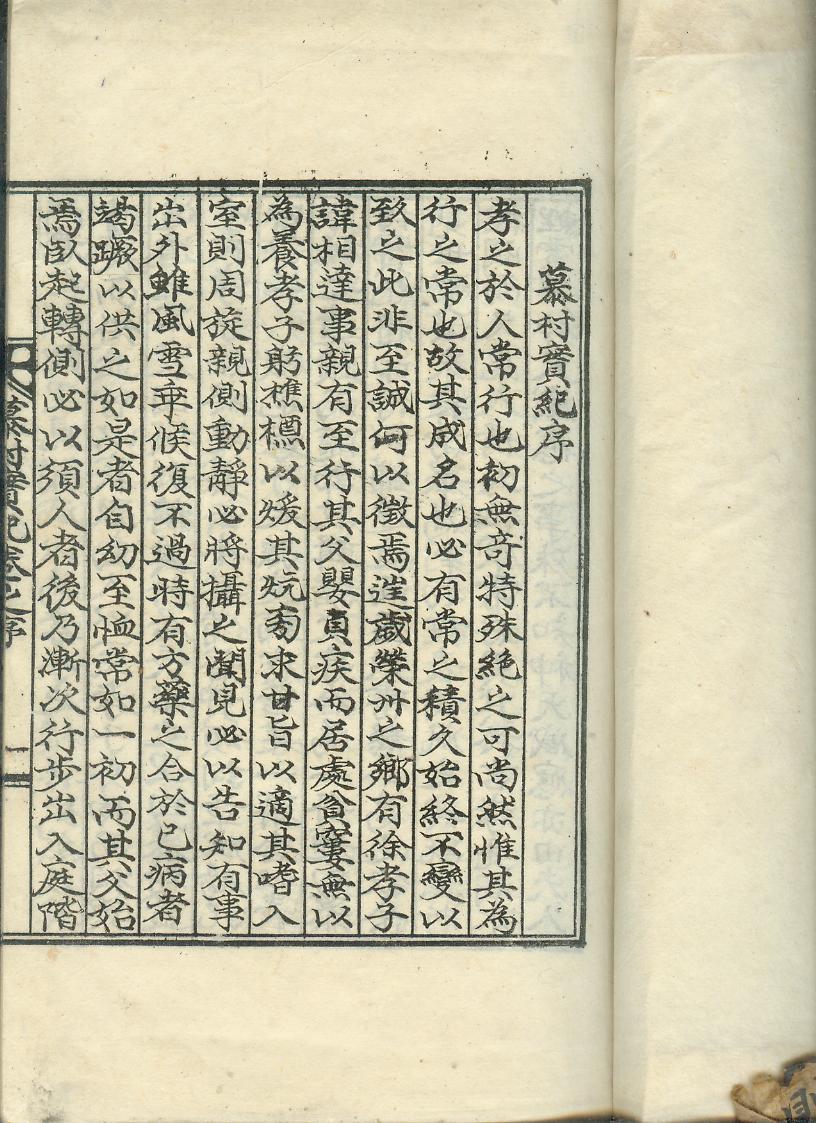 慕村實紀序
孝之於人常行也初無奇特殊絶之可尚然惟其為
行之常也故其成名也必有常之積久始終不變以
致之此非至誠何以徵焉逞歲榮州之鄉有徐孝子
諱相達事親有至行其父嬰貞疾而居處貧窶無以
為養孝子躬樵槱以煖其炕匃求甘旨以適其嗜入
室則周旋親側動靜必將攝之聞見必以告知有事
出外雖風雪乖候復不過時有方藥之合於已病者
竭蹶以供之如是者自幼至恤常如一初而其父始
焉臥起轉側必以須人者後乃漸次行步出入庭階
慕村實紀卷之序
一